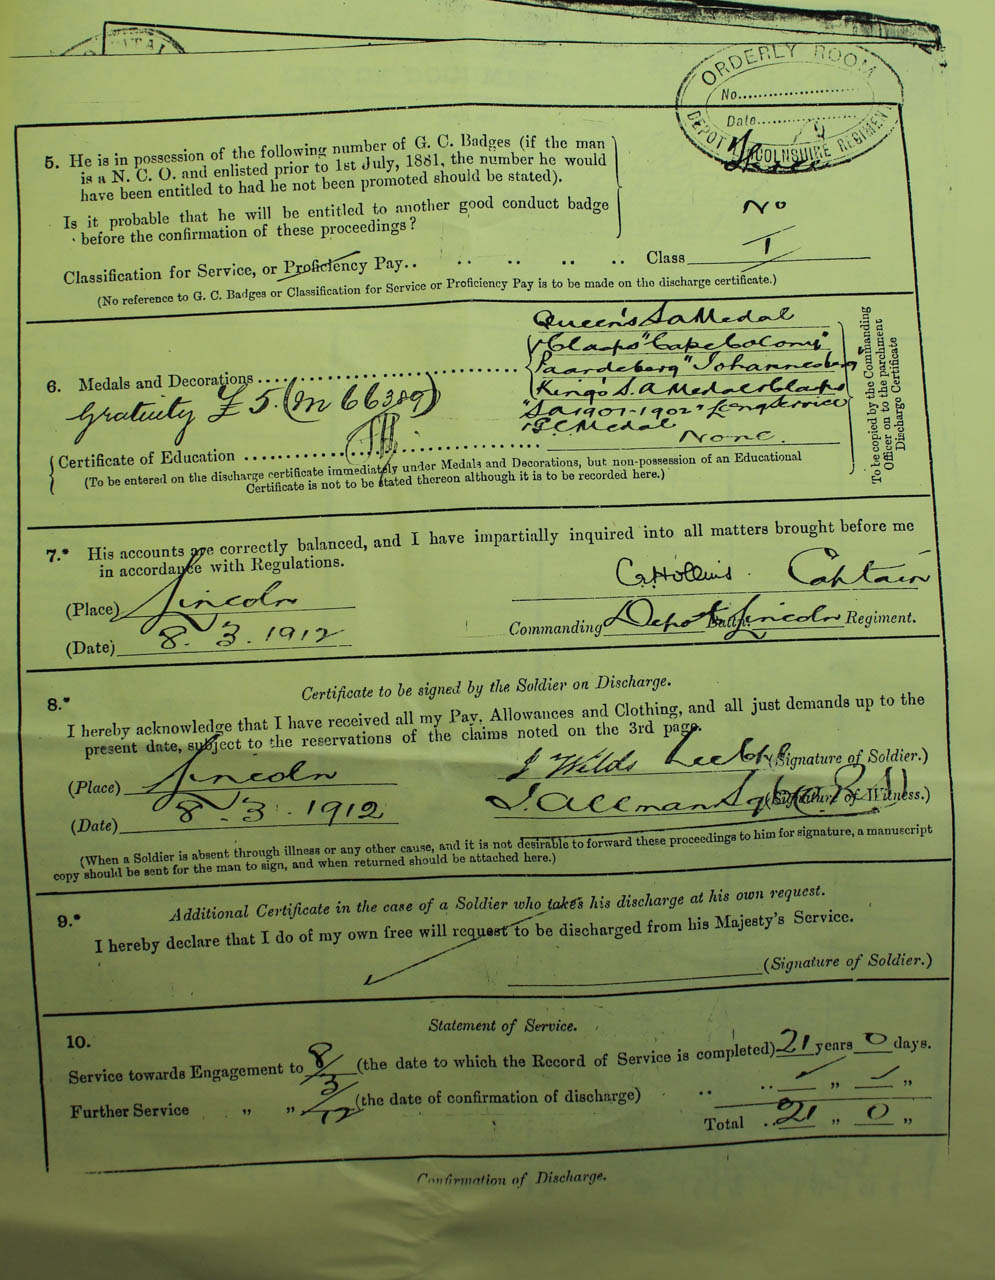 ITAL
ORDERLY ROOM
No.
Date
DEPOT LINCOLNSHIRE REGIMENT
5. He is in possession of the following number of G. C. Badges (if the man
is a N. C. O. and enlisted prior to 1st July, 1881, the number he would
have been entitled to had he not been promoted should be stated).
Is it probable that he will be entitled to another good conduct badge
before the confirmation of these proceedings?
No
Classification for Service, or Proficiency Pay.. .. .. .. .. Class I
(No reference to G. C. Badges or Classification for Service or Proficiency Pay is to be made on the discharge certificate.)
Queen's S A Medal
Clasps "Cape Colony"
Paardeberg" "Johannesberg"
6. Medals and Decorations
King's S.A Medal & Clasps
Gratuity £5. (M 66389)
"SA 1901-1902" Long Service
G.C Medal
Certificate of Education None.
(To be entered on the discharge certificate immediately under Medals and Decorations, but non-possession of an Educational
Certificate is not to be stated thereon although it is to be recorded here.)
To be copied by the Commanding
Officer on to the parchment
Discharge Certificate
7.* His accounts are correctly balanced, and I have impartially inquired into all matters brought before me
in accordance with Regulations.
C. Hollins. Captain
(Place) Lincoln
Commanding Depot Lincoln Regiment.
(Date) 8. 3. 1912
8.* Certificate to be signed by the Soldier on Discharge.
I hereby acknowledge that I have received all my Pay, Allowances and Clothing, and all just demands up to the
present date, subject to the reservations of the claims noted on the 3rd page.
(Place) Lincoln
J Wilds (Signature of Soldier.)
J. Allman (Signature of Witness.)
(Date) 8. 3. 1912
(When a Soldier is absent through illness or any other cause, and it is not desirable to forward these proceedings to him for signature, a manuscript
copy should be sent for the man to sign, and when returned should be attached here.)
9.* Additional Certificate in the case of a Soldier who takes his discharge at his own request.
I hereby declare that I do of my own free will request to be discharged from his Majesty's Service.
(Signature of Soldier.)
10. Statement of Service.
Service towards Engagement to 8/3/12 (the date to which the Record of Service is completed) 21 years 0 days.
Further Service " " (the date of confirmation of discharge) .. .. " "
Total .. 21 " 0 "
Confirmation of Discharge.